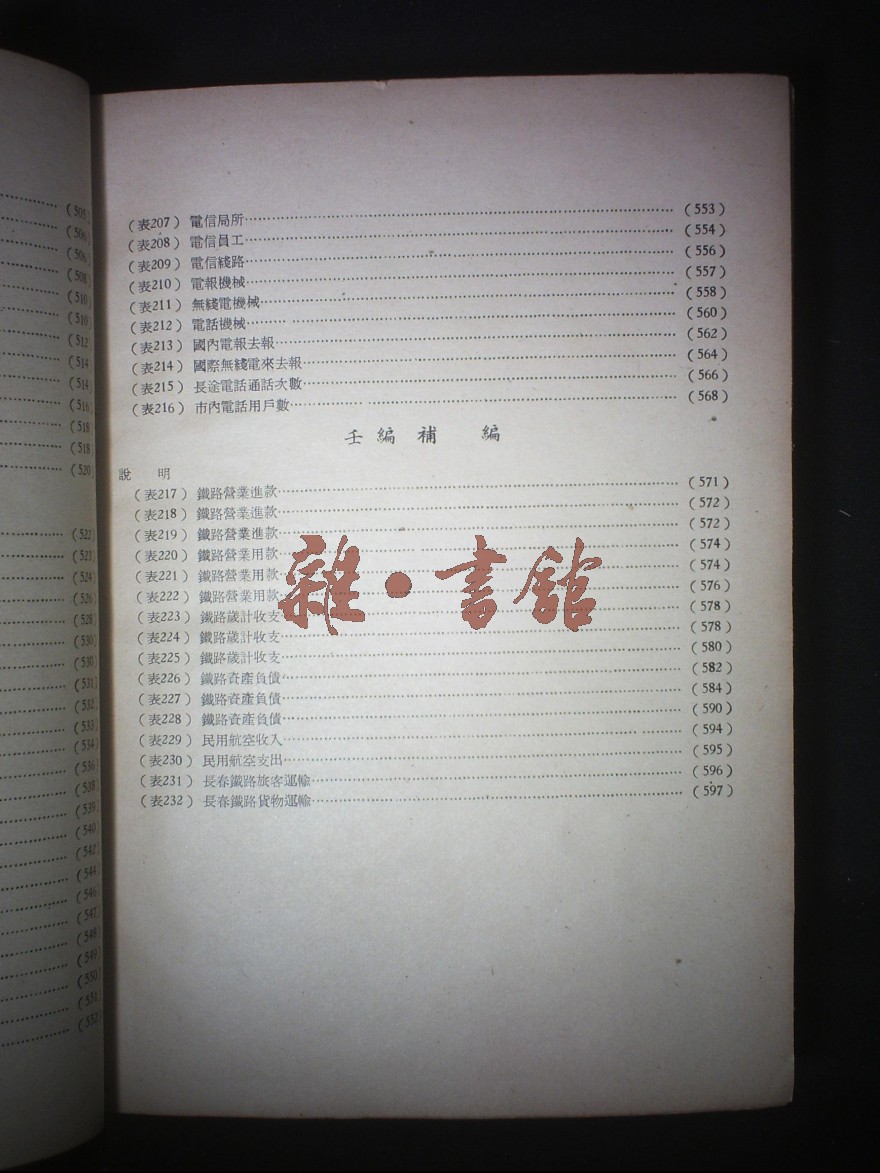 (505)
(506)
(506)
(508)
(510)
(510)
(512)
(514)
(514)
(516)
(518)
(518)
(520)
(522)
(523)
(524)
(526)
(528)
(530)
(530)
(531)
(532)
(533)
(534)
(536)
(538)
(539)
(540)
(542)
(544)
(546)
(547)
(548)
(549)
(550)
(551)
(552)
(表207) 電信局所 (553)
(表208) 電信員工 (554)
(表209) 電信綫路 (556)
(表210) 電報機械 (557)
(表211) 無綫電機械 (558)
(表212) 電話機械 (560)
(表213) 國內電報去報 (562)
(表214) 國際無綫電來去報 (564)
(表215) 長途電話通話次數 (566)
(表216) 市內電話用戶數 (568)
壬編 補 編
說 明
(表217) 鐵路營業進款 (571)
(表218) 鐵路營業進款 (572)
(表219) 鐵路營業進款 (572)
(表220) 鐵路營業用款 (574)
(表221) 鐵路營業用款 (574)
(表222) 鐵路營業用款 (576)
(表223) 鐵路歲計收支 (578)
(表224) 鐵路歲計收支 (578)
(表225) 鐵路歲計收支 (580)
(表226) 鐵路資產負債 (582)
(表227) 鐵路資產負債 (584)
(表228) 鐵路資產負債 (590)
(表229) 民用航空收入 (594)
(表230) 民用航空支出 (595)
(表231) 長春鐵路旅客運輸 (596)
(表232) 長春鐵路貨物運輸 (597)
雜·書館